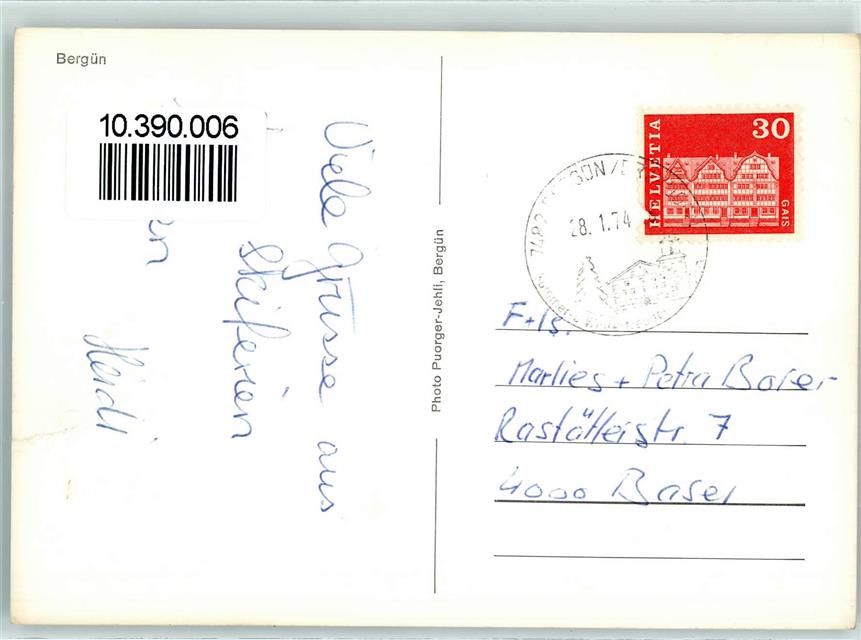 Bergün
10.390.006
Viele Grüsse aus
Skiferien
en
Heidi
Photo Puorger-Jehli, Bergün
HELVETIA
30
GAIS
7482
28.1.74
Frls.
Marlies + Petra
Rastätterstr. 7
4000 Basel